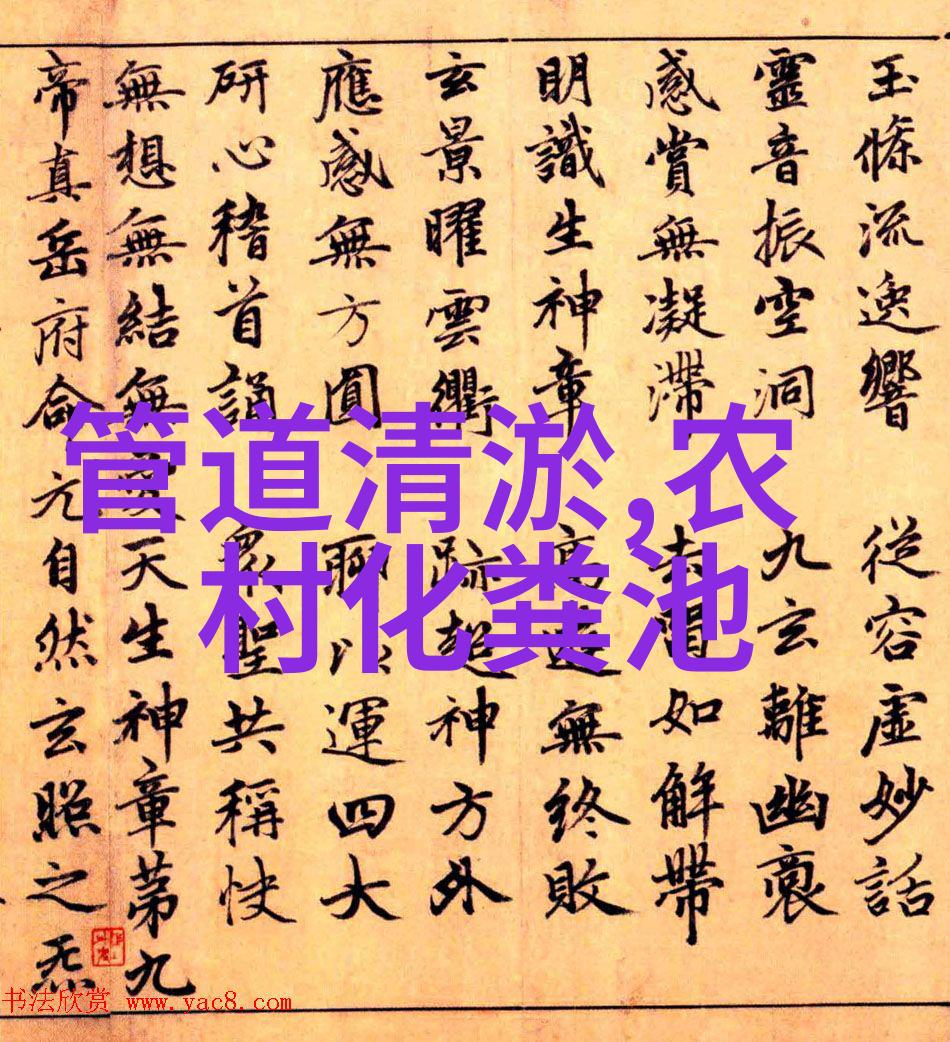 玉條流逸響 從容虛妙話
靈音振空洞 九玄離幽
感賞無凝滯 如解帶
明識生神章 高遊無終敗
玄景曜雲衢 跡超神方外
應感無方圓 聊以運四大
研心稽首誦 聖共稱快
無想無結無愛天生神章第九
帝真岳府命元自然玄照之炁
管道清淤,农
村化粪池
书法欣赏 www.yac8.com